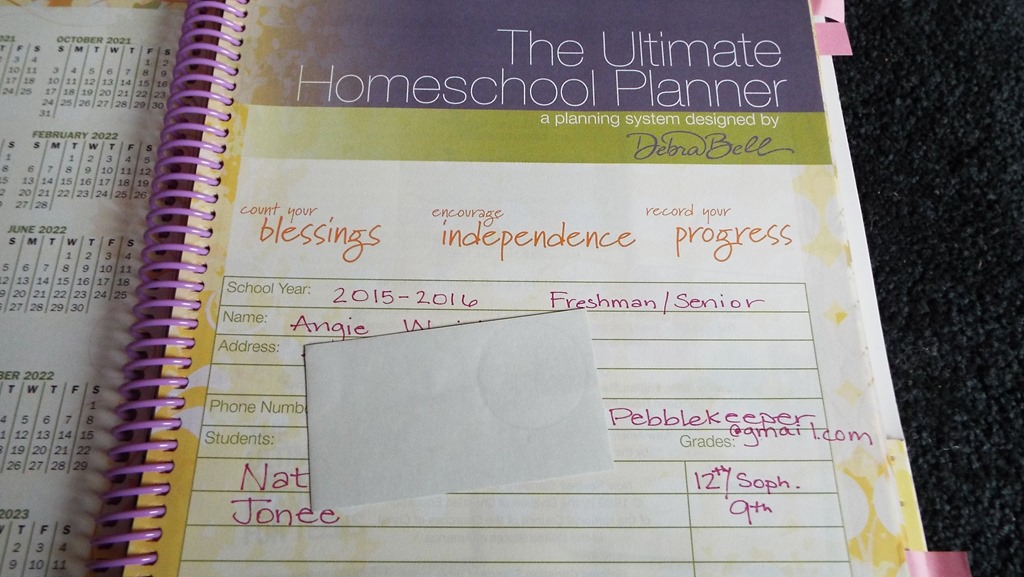 OCTOBER 2021
S M T W T F S
1 2
3 4 5 6 7 8 9
10 11 12 13 14 15 16
17 18 19 20 21 22 23
24 25 26 27 28 29 30
31
FEBRUARY 2022
S M T W T F S
1 2 3 4 5
6 7 8 9 10 11 12
13 14 15 16 17 18 19
20 21 22 23 24 25 26
27 28
JUNE 2022
S M T W T F S
1 2 3 4
5 6 7 8 9 10 11
12 13 14 15 16 17 18
19 20 21 22 23 24 25
26 27 28 29 30
BER 2022
T W T F S
1
4 5 6 7 8
11 12 13 14 15
18 19 20 21 22
26 27 28 29
2023
W T F S
2 3 4
9 10 11
The Ultimate
Homeschool Planner
a planning system designed by
Debra Bell
count your encourage record your
blessings independence progress
School Year: 2015-2016 Freshman/Senior
Name: Angie
Address:
Phone Numb Pebblekeeper
@gmail.com
Students: Grades:
Nat 12th/Soph.
Jonee 9th